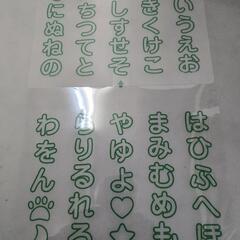 いうえお
きくけこ
しすせそ
ちつてと
にぬねの
はひふへほ
まみむめも
やゆよ
らりるれろ
わをん